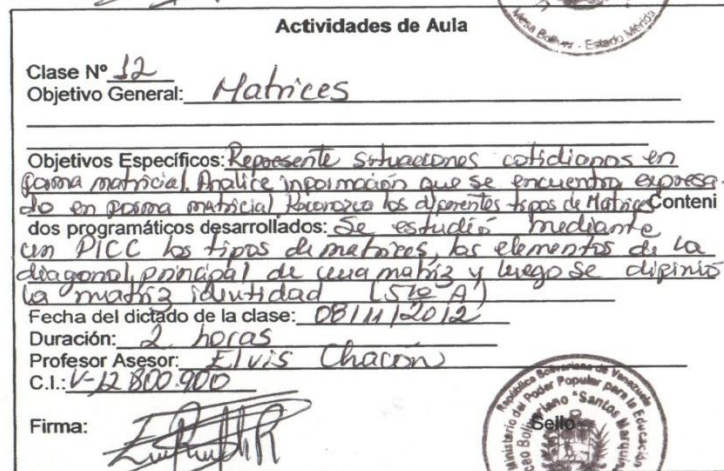 Mesa Bolívar - Estado Mérida
Actividades de Aula
Clase Nº 12
Objetivo General: Matrices
Objetivos Específicos: Represente situaciones cotidianas en
forma matricial. Analice información que se encuentra expresa-
do en forma matricial. Reconozca los diferentes tipos de Matrices Conteni
dos programáticos desarrollados: Se estudió mediante
un PICC los tipos de matrices, los elementos de la
diagonal principal de una matriz y luego se difinió
la matriz identidad (5to A)
Fecha del dictado de la clase: 08/11/2012
Duración: 2 horas
Profesor Asesor: Elvis Chacón
C.I.: V-12 800.900
Firma:
Sello
República Bolivariana de Venezuela
Ministerio del Poder Popular para la Educación
Liceo Bolivariano "Santos Marquina